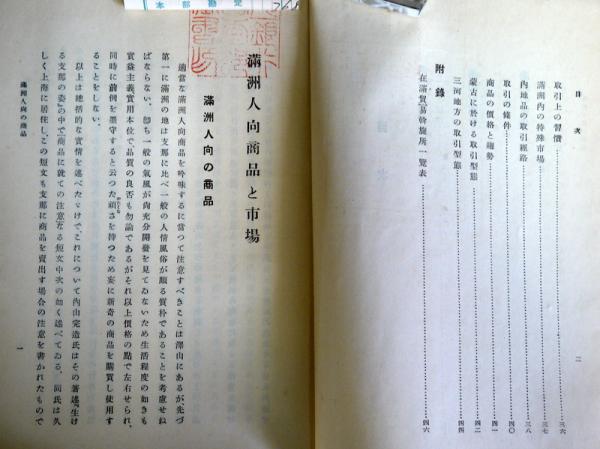 目次
取引上の習慣……三六
満洲内の特殊市場……三七
内地品の取引経路……三八
取引の條件……四〇
商品の價格と趨勢……四一
蒙古に於ける取引型態……四二
三河地方の取引型態……四四
附錄
在滿貿易斡旋所一覽表……四六
二
本部勘定
滿洲人向商品と市場
滿洲人向の商品
適當な滿洲人向商品を吟味するに當つて注意すべきことは澤山にあるが、先づ
第一に滿洲の地は支那に比べ一般の人情風俗が頗る質朴であることを考慮せね
ばならない。卽ち一般の氣風が尙充分開發を見てゐないため生活程度の如きも
實益主義、實用本位で、品質の良否も勿論であるがそれ以上價格の點で左右せられ、
同時に前例を墨守すると云つた頑さを持つため妄に新奇の商品を購買し使用す
ることをしない。
以上は總括的な實情を述べたゞけで、これについて内山完造氏はその著述『生け
る支那の姿』の中で「商品に就ての注意」なる短文中次の如く述べてゐる。同氏は久
しく上海に居住し、この短文も支那に商品を賣出す場合の注意を書かれたもので
滿洲人向の商品
一